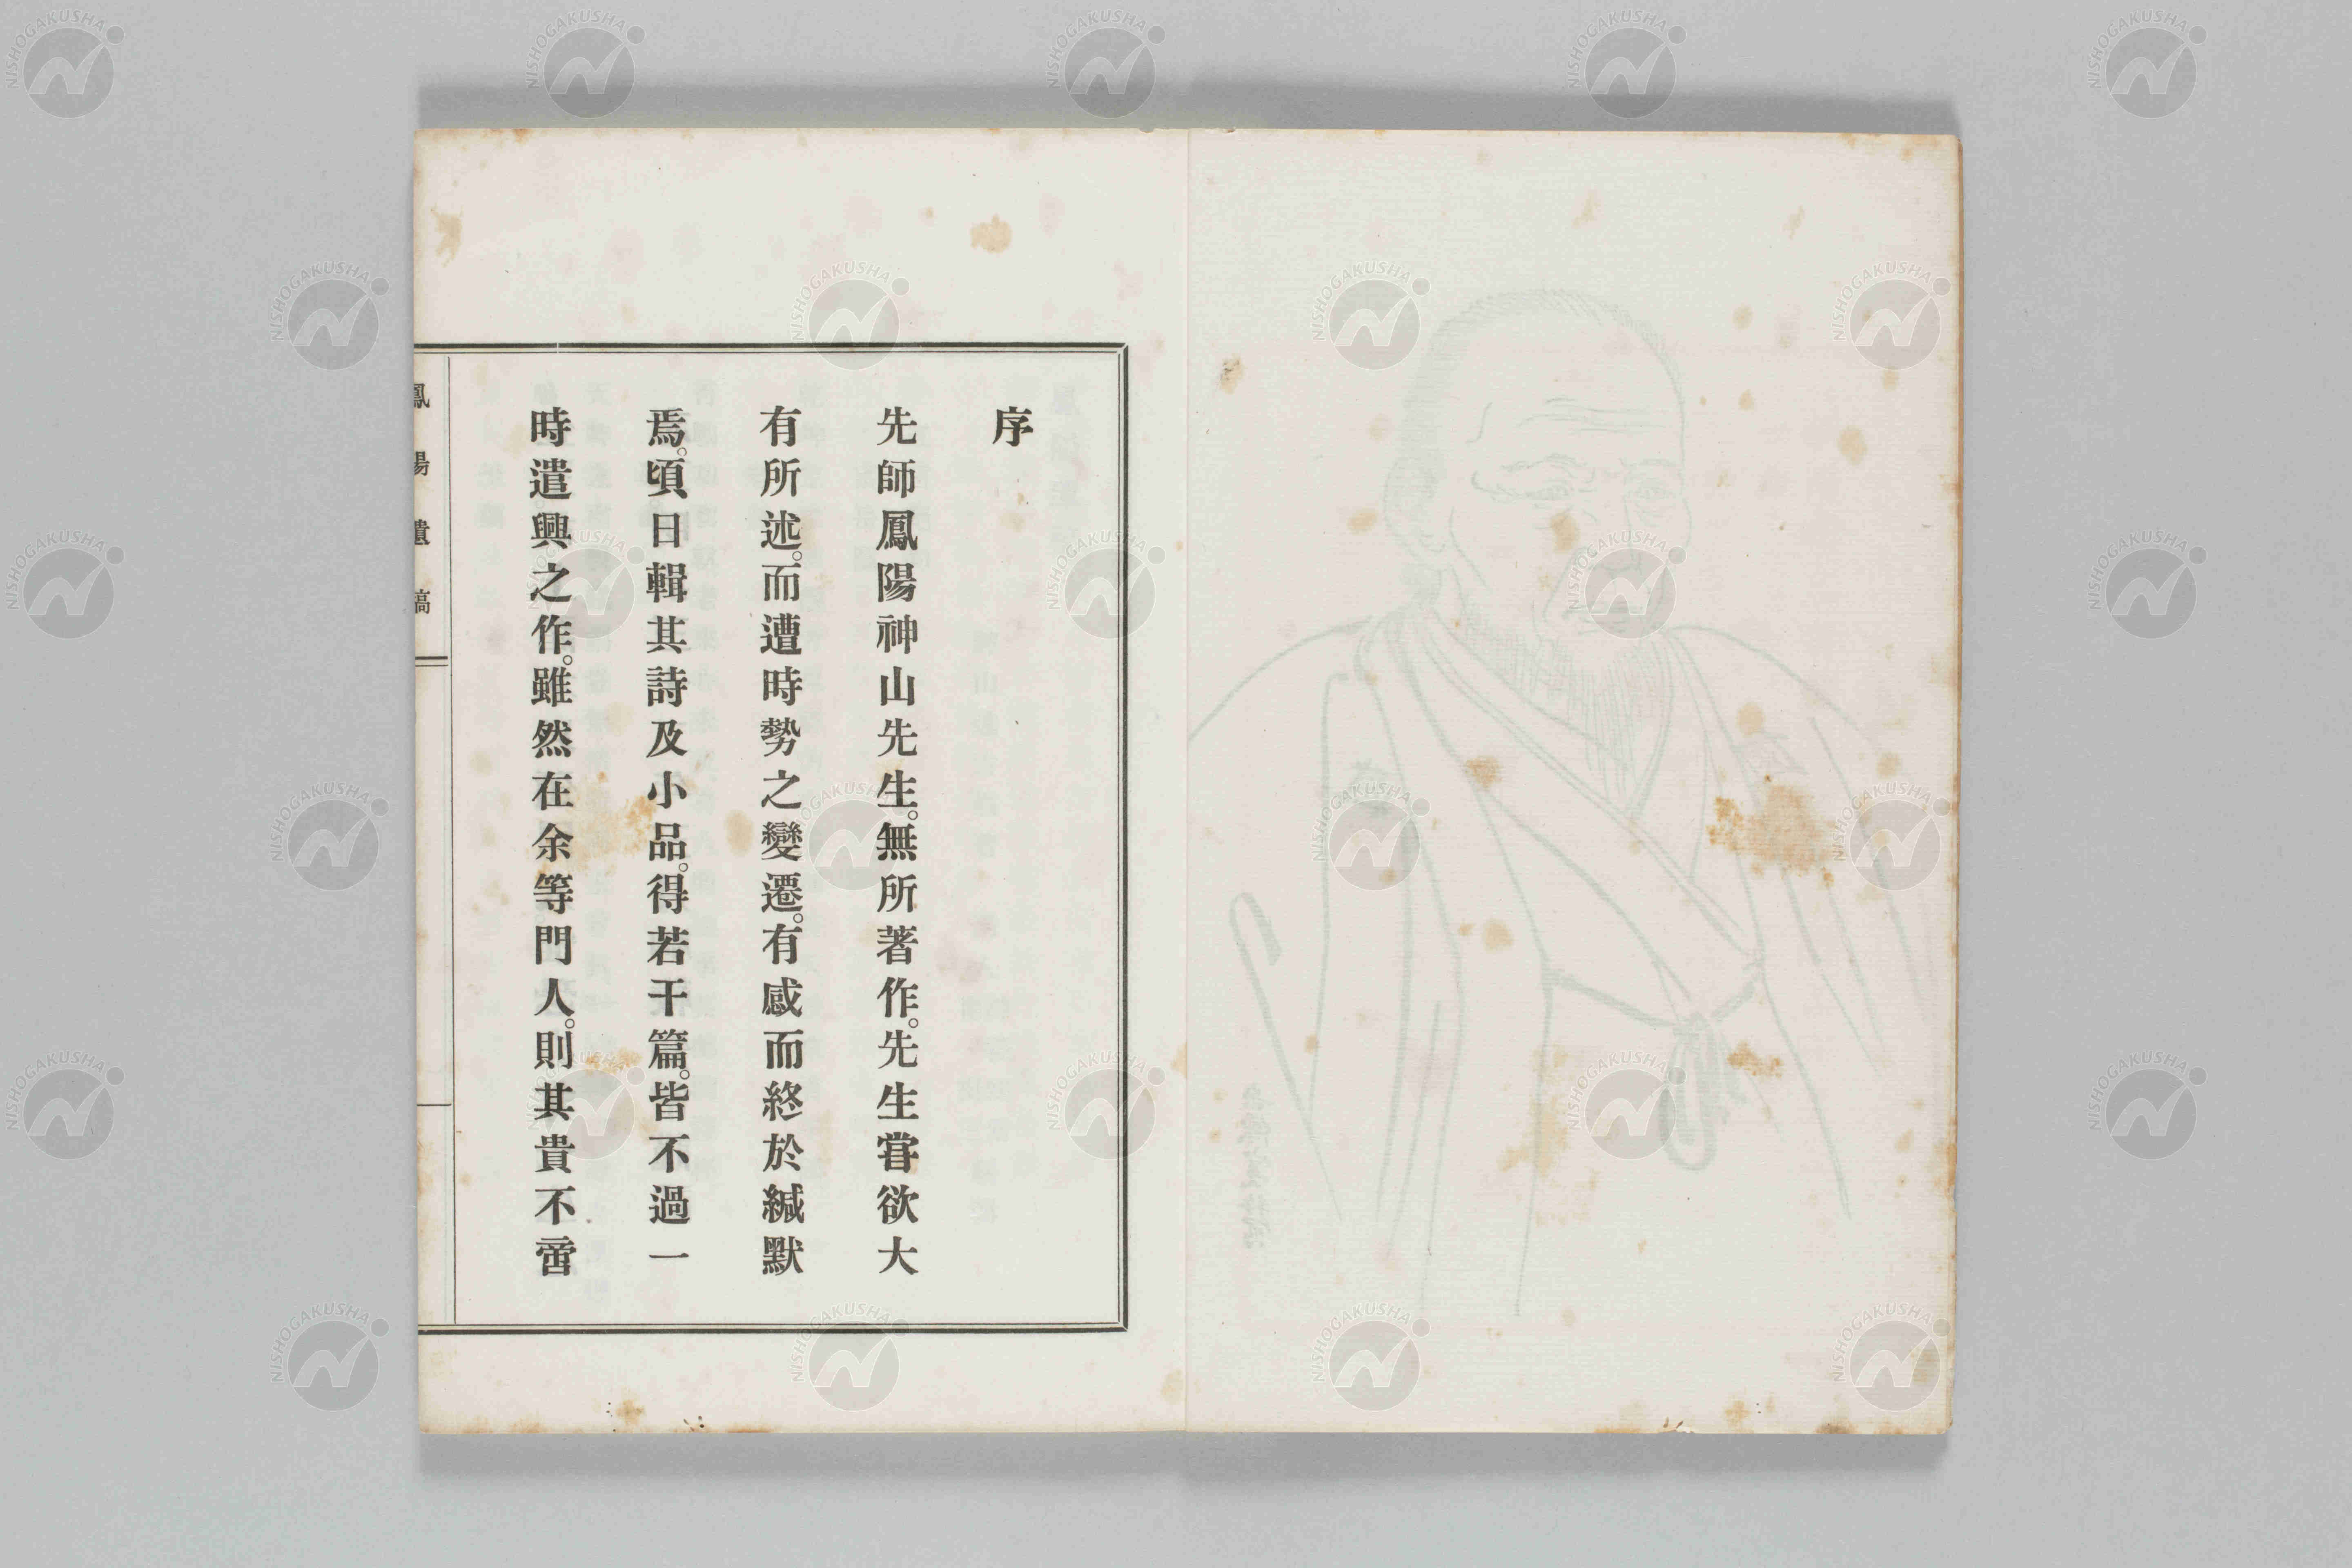 序
先師鳳陽神山先生。無所著作。先生嘗欲大
有所述。而遭時勢之變遷。有感而終於緘默
焉。頃日輯其詩及小品。得若干篇。皆不過一
時遣興之作。雖然在余等門人。則其貴不啻
鳳陽遺稿